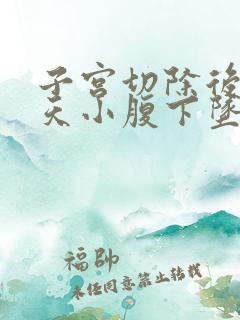 子宫切除後
天小腹下墜
福帥
未经同意禁止转载